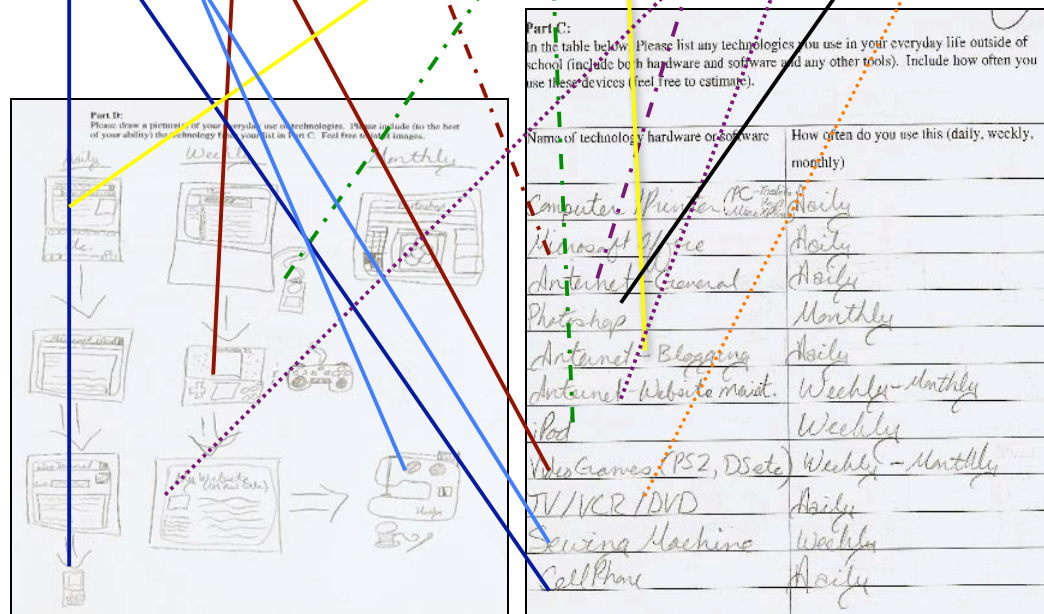 Part D:
Please draw a picture(s) of your everyday use of technologies. Please include (to the best
of your ability) the technology from your list in Part C. Feel free to label images.
Daily Weekly Monthly
My Website
Part C:
In the table below, Please list any technologies you use in your everyday life outside of
school (include both hardware and software and any other tools). Include how often you
use these devices (feel free to estimate).
Name of technology hardware or software How often do you use this (daily, weekly,
monthly)
Computer /Printer (PC Daily
Microsoft Office Daily
Internet - General Daily
Photoshop Monthly
Internet - Blogging Daily
Internet - Website Maint. Weekly - Monthly
iPod Weekly
Video Games (PS2, DS etc) Weekly - Monthly
TV/VCR/DVD Daily
Sewing Machine Weekly
Cell Phone Daily